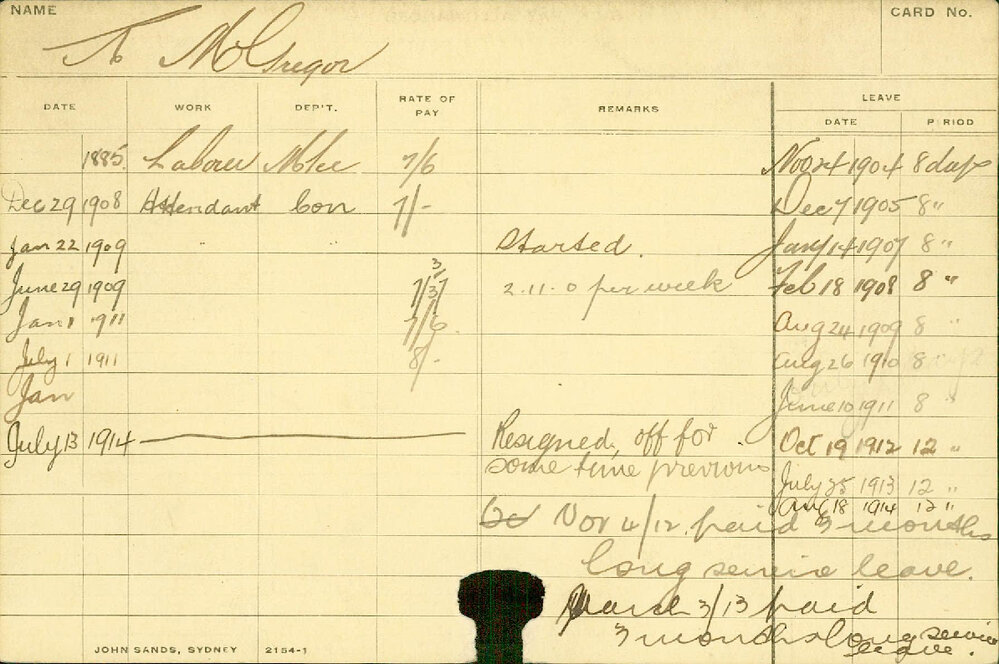 NAME
CARD No.
McGregor
DATE WORK DEP'T. RATE OF PAY REMARKS LEAVE
DATE PERIOD
1885 Labour 7/6 Nov 24 1904 8 days
Dec 29 1908 Attendant Con 7/- Dec 7 1905 8 "
Jan 22 1909 " " Started. Jany 14 1907 8 "
June 29 1909 7/3 2.11.0 per week Feb 18 1908 8 "
Jan 1 1911 7/6. Aug 24 1909 8 "
July 1 1911 8/- Aug 26 1910 8 "
Jan June 10 1911 8 "
July 13 1914 Resigned, off for Oct 19 1912 12 "
some time previous July 25 1913 12 "
Aug 18 1914 12 "
Nov 4/12. paid 3 months
long service leave.
March 3/13 paid
3 months long service
leave.
JOHN SANDS, SYDNEY 2154-1